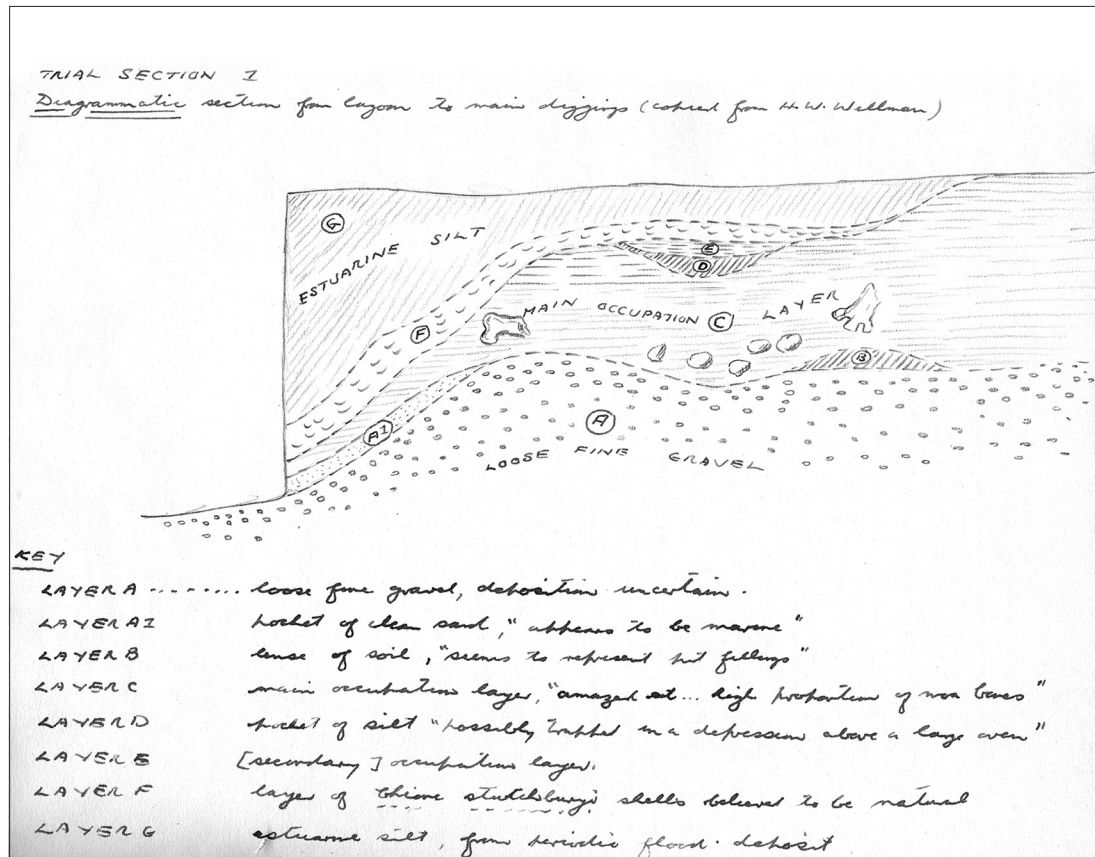 TRIAL SECTION I
Diagrammatic section from lagoon to main diggings (copied from H.W. Wellman)
G
ESTUARINE SILT
E
D
F
MAIN OCCUPATION C LAYER
B
A1
A
LOOSE FINE GRAVEL
KEY
LAYER A ........ loose fine gravel, deposition uncertain.
LAYER A1 pocket of clean sand, "appears to be marine"
LAYER B lense of soil, "seems to represent pit fillings"
LAYER C main occupation layer, "amazed at... high proportion of moa bones"
LAYER D pocket of silt "possibly trapped in a depression above a large oven"
LAYER E [secondary] occupation layer.
LAYER F layer of Chione stutchburyi shells believed to be natural
LAYER G estuarine silt, from periodic flood deposit